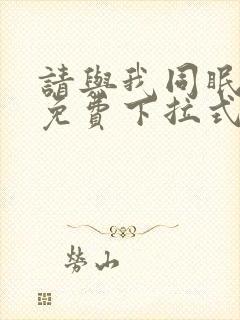 請與我同眠
免費下拉式
勞山